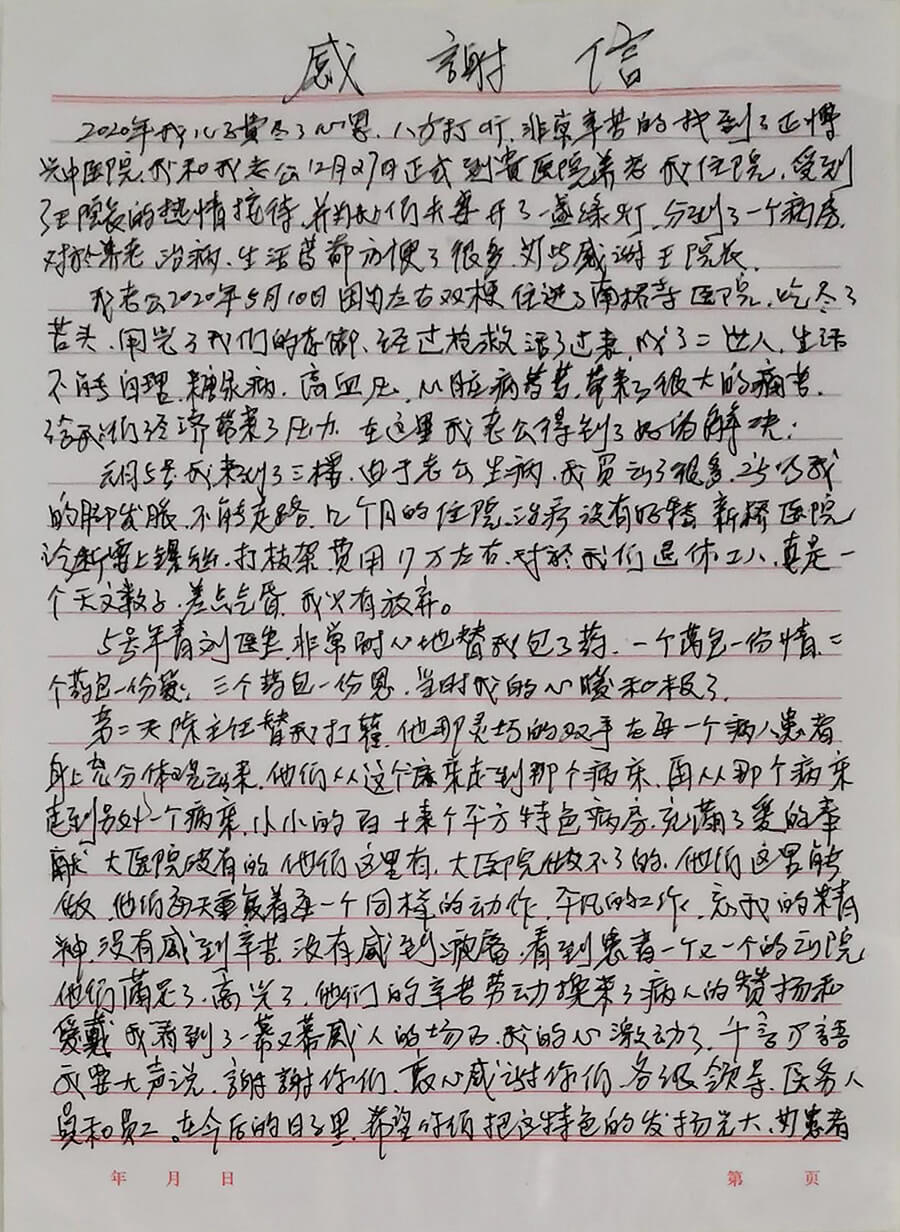 感 謝 信
2020年我儿子費尽了心思、八方打听、非常辛苦的找到了正博
兴中医院、我和我老公12月27日正式到貴医院养老 我住院、受到
了王院长的热情接待、并为我们夫妻开了一盏绿灯、分到了一个病房、
对於养老 治病、生活 都方便了很多、 感謝王院长、
我老公2020年5月10日因为左右双梗住进了南桥寺医院、吃尽了
苦头、用光了我们的存 、经过抢救 活了过来、成了二世人、生活
不能自理、糖尿病、高血压、心脏病等等、带来了很大的痛苦、
给我们经濟带来了压力 在这里我老公得到了好的解决；
元月5号我来到了三楼、由于老公生病、我 了很多、 我
的脚发胀、不能走路、几个月的住院治疗没有好转 新桥医院
诊断需上螺丝、打 架 费用17万左右、对於我们退休工人、真是一
个天文数字、差点气昏、我只有放弃。
5号年青刘医生、非常耐心地替我包了药、一个药包一份情、二
个药包一份爱；三个药包一份恩、当时我的心暖和极了、
第二天陈主任替我打 、他那灵巧的双手在每一个病人患者
身上充分体现出来、他们从这个床来走到那个病床、再从那个病床
走到另外一个病床、小小的百十来个平方特色病房、充满了爱的奉
献 大医院没有的 他们这里有、大医院做不了的、他们这里能
做、他们每天重复着每一个同样的动作、平凡的工作、忘我的精
神、没有感到辛苦 没有感到疲 、看到患者一个又一个的出院
他们满足了、高兴了、他们的辛苦劳动换来了病人的赞扬和
爱戴 我看到了一幕又幕感人的场 、我的心激动了、千言万語
我要大声说、謝謝你们、衷心感謝你们、各级领导、医务人
员和员工。在今后的日子里、希望你们把这特色的发扬光大、 患者
年 月 日 第 页